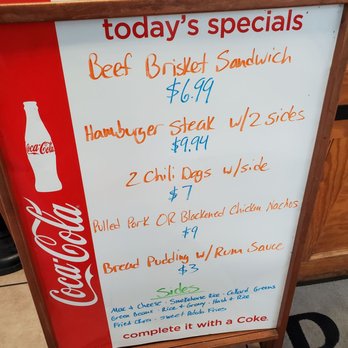 today's specials
Beef Brisket Sandwich
$6.99
Hamburger Steak w/2 sides
$9.94
2 Chili Dogs w/side
$7
Pulled Pork OR Blackened Chicken Nachos
$9
Bread Pudding w/Rum Sauce
$3
Sides
Mac & Cheese - Smokehouse Rice - Collard Greens
Green Beans - Rice & Gravy - Hash & Rice
Fried Okra - Sweet Potato Fries
complete it with a Coke.
Coca-Cola
Coca-Cola